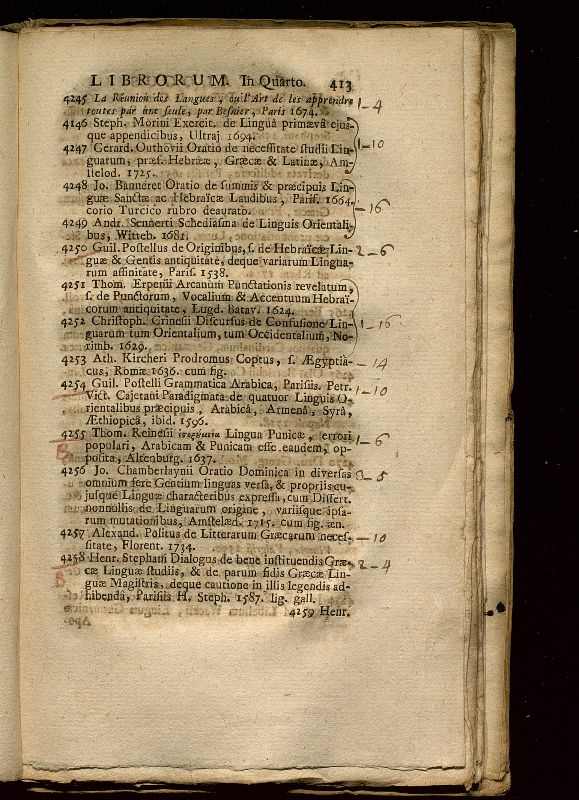 LIBRORUM. In Quarto. 413
4245 La Réunion des Langues, ou l'Art de les apprendre 1-4
toutes par une seule, par Besnier, Paris 1674.
4146 Steph. Morini Exercit. de Linguâ primævâ ejus-
que appendicibus, Ultraj. 1694.
4247 Gerard. Outhovii Oratio de necessitate studii Lin- 1-10
guarum, præs. Hebrææ, Græcæ & Latinæ, Am-
stelod. 1725.
4248 Jo. Banneret Oratio de summis & præcipuis Lin-
guæ Sanctæ ac Hebraïcæ Laudibus, Paris. 1664.
corio Turcico rubro deaurato. -16
4249 Andr. Sennerti Schediasma de Linguis Orientali-
bus, Witteb. 1681.
4250 Guil. Postellus de Originibus, s. de Hebraïcæ Lin- 2-6
guæ & Gentis antiquitate, deque variarum Lingua-
rum affinitate, Paris. 1538.
4251 Thom. Erpenii Arcanum Punctationis revelatum,
s. de Punctorum, Vocalium & Accentuum Hebraï-
corum antiquitate, Lugd. Batav. 1624.
4252 Christoph. Crinesii Discursus de Confusione Lin- 1-16
guarum tum Orientalium, tum Occidentalium, No-
rimb. 1629.
4253 Ath. Kircheri Prodromus Coptus, s. Ægyptia- -14
cus, Romæ 1636. cum fig.
4254 Guil. Postelli Grammatica Arabica, Parisiis. Petr. 1-10
Vict. Cajetani Paradigmata de quatuor Linguis O-
rientalibus præcipuis, Arabicâ, Armenâ, Syrâ,
Æthiopicâ, ibid. 1596.
4255 Thom. Reinesii ἱστορούμενα Lingua Punicæ, errori 1-6
B populari, Arabicam & Punicam esse eandem, op-
posita, Altenburg. 1637.
4256 Jo. Chamberlaynii Oratio Dominica in diversas 3-5
omnium fere Gentium linguas versa, & propriis cu-
jusque Linguæ characteribus expressa, cum Dissert.
nonnullis de Linguarum origine, variisque ipsa-
rum mutationibus, Amstelæd. 1715. cum fig. æn.
4257 Alexand. Politus de Litterarum Græcarum neces- -10
sitate, Florent. 1734.
4258 Henr. Stephani Dialogus de bene instituendis Græ- 2-4
B cæ Linguæ studiis, & de parum fidis Græcæ Lin-
guæ Magistris, deque cautione in illis legendis ad-
hibendâ, Parisiis H. Steph. 1587. lig. gall.
4259 Henr.